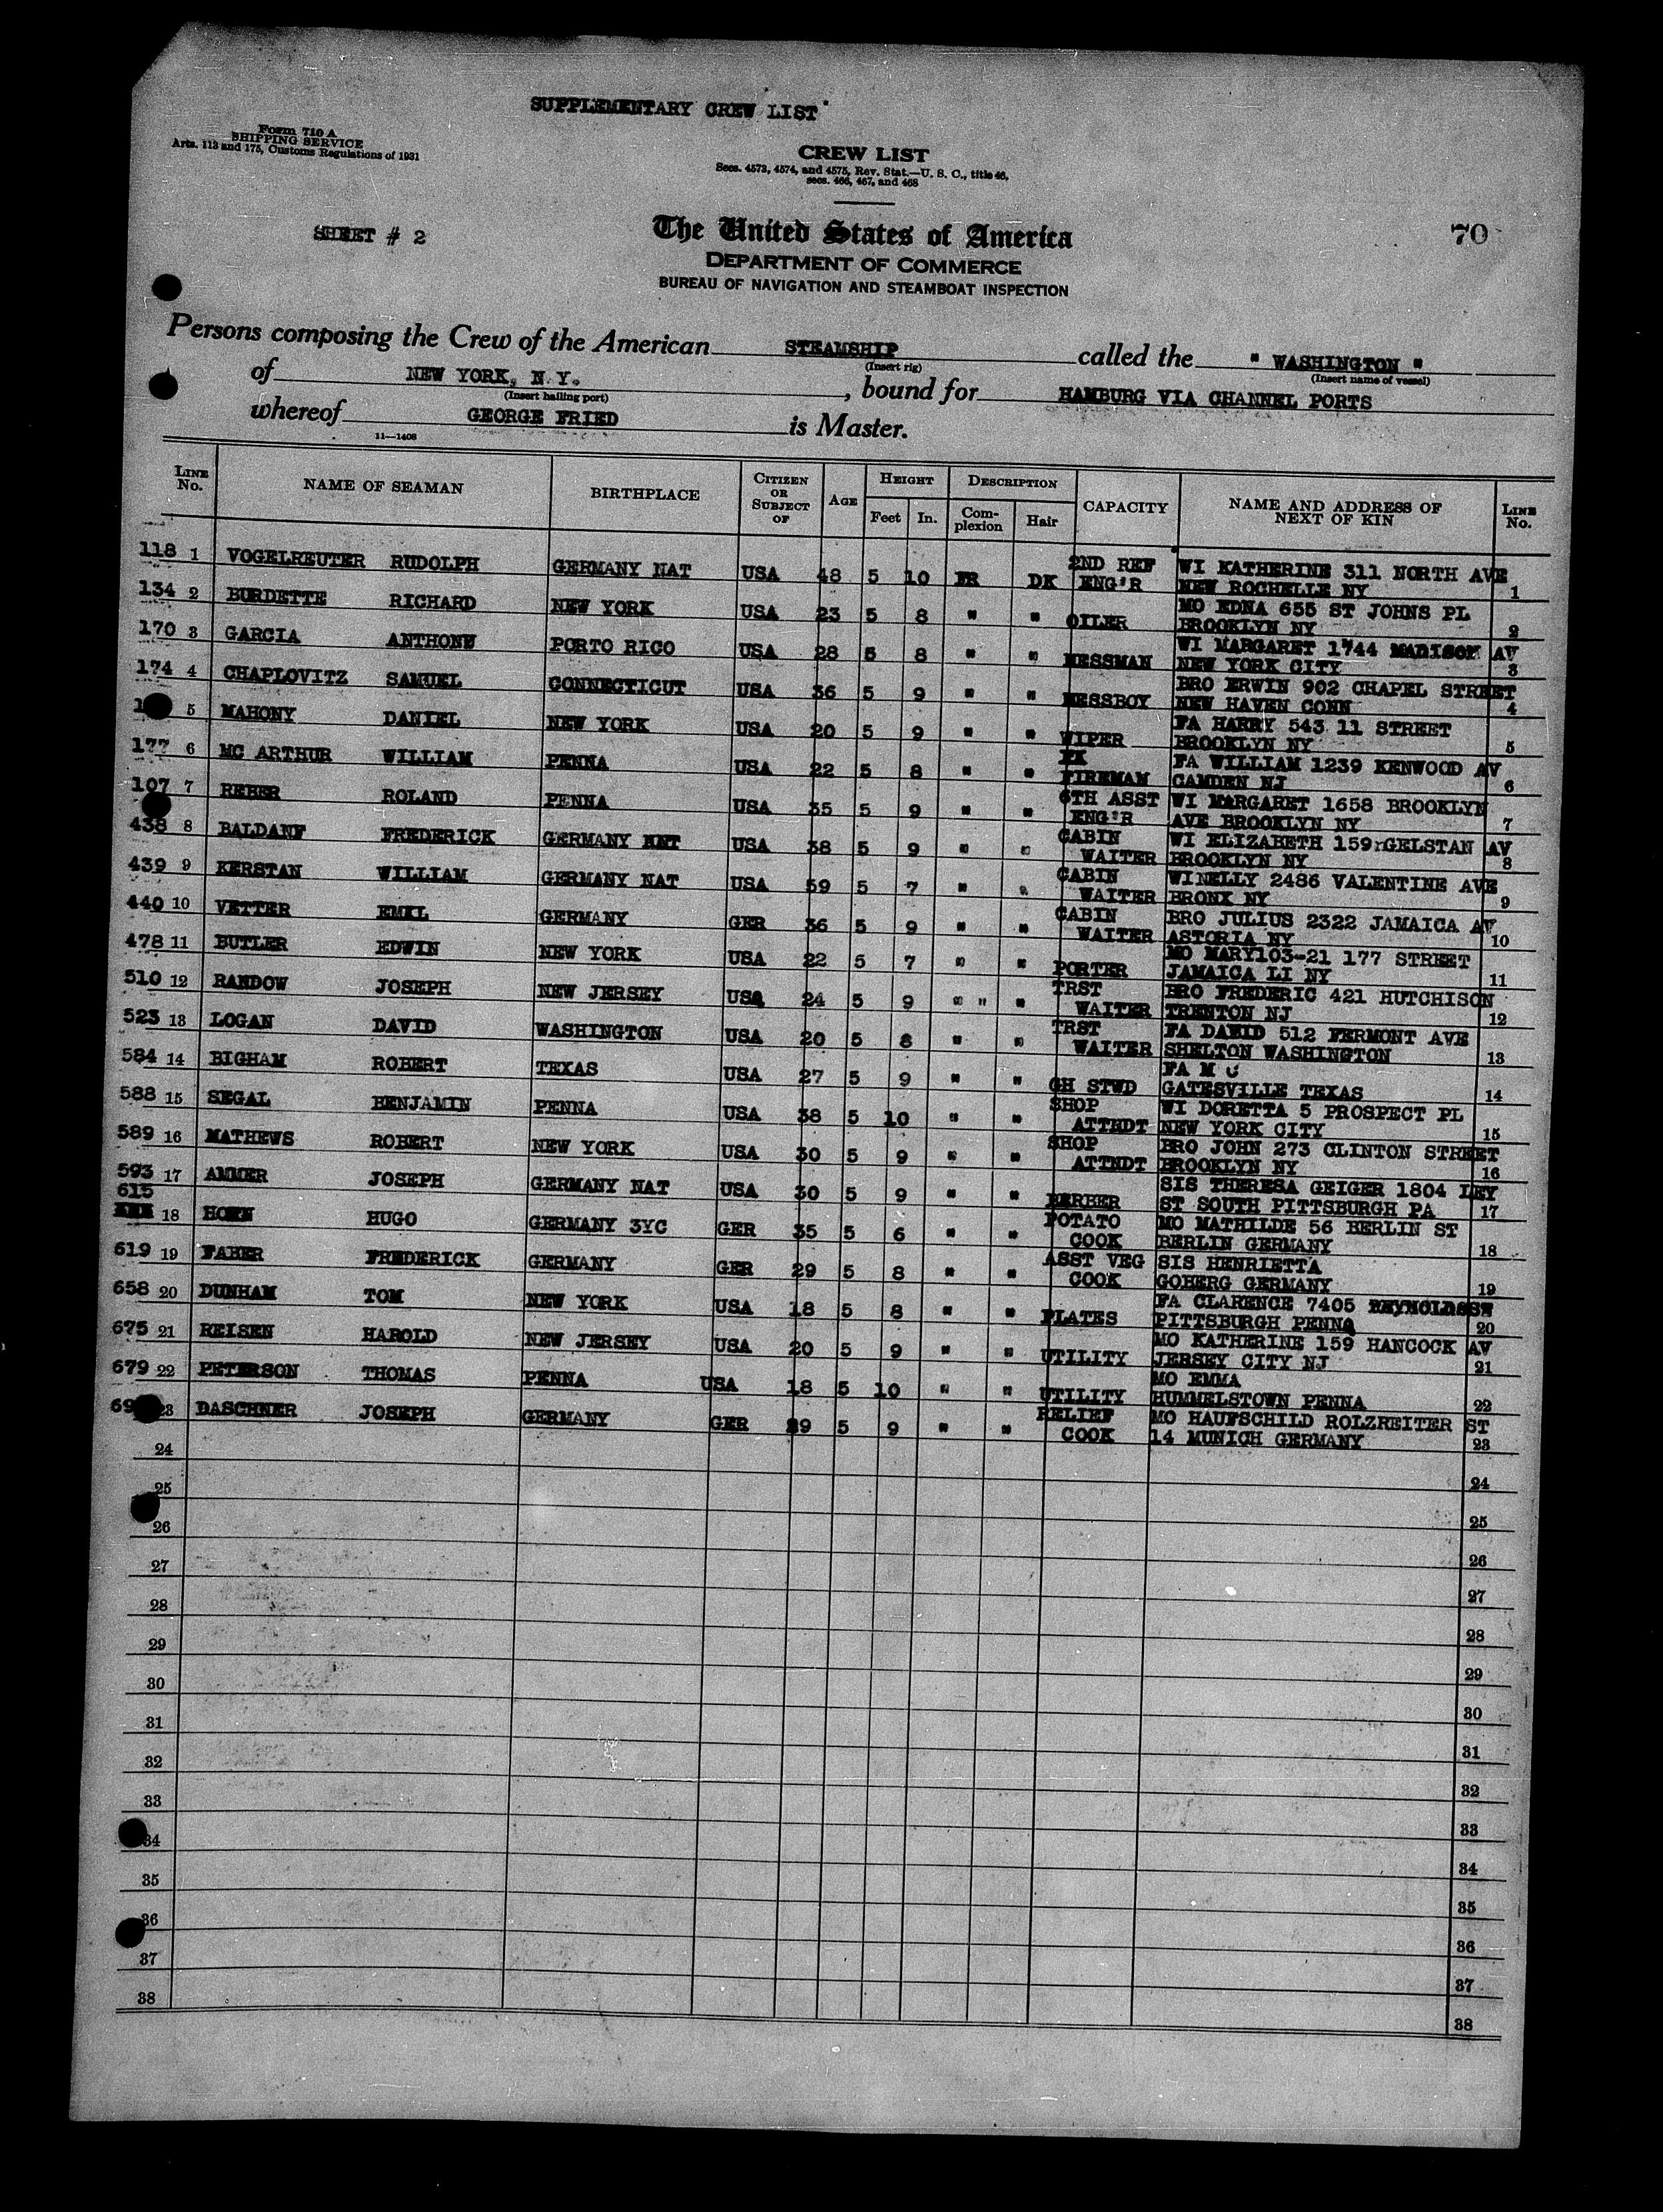 SUPPLEMENTARY CREW LIST
Form 710 A
SHIPPING SERVICE
Arts. 113 and 175, Customs Regulations of 1931
CREW LIST
Secs. 4573, 4574, and 4575, Rev. Stat.—U. S. C., title 46,
secs. 466, 467, and 468
SHEET # 2
The United States of America
70
DEPARTMENT OF COMMERCE
BUREAU OF NAVIGATION AND STEAMBOAT INSPECTION
Persons composing the Crew of the American STEAMSHIP called the " WASHINGTON "
(Insert rig) (Insert name of vessel)
of NEW YORK, N.Y. , bound for HAMBURG VIA CHANNEL PORTS
(Insert hailing port)
whereof GEORGE FRIED is Master.
11—1408
LINE No. NAME OF SEAMAN BIRTHPLACE CITIZEN OR SUBJECT OF AGE HEIGHT Feet In. DESCRIPTION Complexion Hair CAPACITY NAME AND ADDRESS OF NEXT OF KIN LINE No.
118 1 VOGELREUTER RUDOLPH GERMANY NAT USA 48 5 10 FR DK 2ND REF ENG'R WI KATHERINE 311 NORTH AVE NEW ROCHELLE NY 1
134 2 BURDETTE RICHARD NEW YORK USA 23 5 8 " " OILER MO EDNA 655 ST JOHNS PL BROOKLYN NY 2
170 3 GARCIA ANTHONY PORTO RICO USA 28 5 8 " " MESSMAN WI MARGARET 1744 MADISON AV NEW YORK CITY 3
174 4 CHAPLOVITZ SAMUEL CONNECTICUT USA 36 5 9 " " MESSBOY BRO ERWIN 902 CHAPEL STREET NEW HAVEN CONN 4
5 MAHONY DANIEL NEW YORK USA 20 5 9 " " WIPER FA HARRY 543 11 STREET BROOKLYN NY 5
177 6 MC ARTHUR WILLIAM PENNA USA 22 5 8 " " FIREMAN FA WILLIAM 1239 KENWOOD AV CAMDEN NJ 6
107 7 REBER ROLAND PENNA USA 35 5 9 " " 6TH ASST ENG'R WI MARGARET 1658 BROOKLYN AVE BROOKLYN NY 7
438 8 BALDANF FREDERICK GERMANY NAT USA 38 5 9 " " CABIN WAITER WI ELIZABETH 159 GELSTAN AV BROOKLYN NY 8
439 9 KERSTAN WILLIAM GERMANY NAT USA 59 5 7 " " CABIN WAITER WI NELLY 2486 VALENTINE AVE BRONX NY 9
440 10 VETTER EMIL GERMANY GER 36 5 9 " " CABIN WAITER BRO JULIUS 2322 JAMAICA AV ASTORIA NY 10
478 11 BUTLER EDWIN NEW YORK USA 22 5 7 " " PORTER MO MARY103-21 177 STREET JAMAICA LI NY 11
510 12 RANDOW JOSEPH NEW JERSEY USA 24 5 9 " " " TRST WAITER BRO FREDERIC 421 HUTCHISON TRENTON NJ 12
523 13 LOGAN DAVID WASHINGTON USA 20 5 8 " " TRST WAITER FA DAVID 512 FERMONT AVE SHELTON WASHINGTON 13
584 14 BIGHAM ROBERT TEXAS USA 27 5 9 " " GH STWD FA M C GATESVILLE TEXAS 14
588 15 SEGAL BENJAMIN PENNA USA 38 5 10 " " SHOP ATTNDT WI DORETTA 5 PROSPECT PL NEW YORK CITY 15
589 16 MATHEWS ROBERT NEW YORK USA 30 5 9 " " SHOP ATTNDT BRO JOHN 273 CLINTON STREET BROOKLYN NY 16
593 17 AMMER JOSEPH GERMANY NAT USA 30 5 9 " " BERBER SIS THERESA GEIGER 1804 LEY ST SOUTH PITTSBURGH PA 17
615 18 HORN HUGO GERMANY 3YC GER 35 5 6 " " POTATO COOK MO MATHILDE 56 BERLIN ST BERLIN GERMANY 18
619 19 FABER FREDERICK GERMANY GER 29 5 8 " " ASST VEG COOK SIS HENRIETTA GOBERG GERMANY 19
658 20 DUNHAM TOM NEW YORK USA 18 5 8 " " PLATES FA CLARENCE 7405 REYNOLDSST PITTSBURGH PENNA 20
675 21 REISEN HAROLD NEW JERSEY USA 20 5 9 " " UTILITY MO KATHERINE 159 HANCOCK AV JERSEY CITY NJ 21
679 22 PETERSON THOMAS PENNA USA 18 5 10 " " UTILITY MO EMMA HUMMELSTOWN PENNA 22
23 DASCHNER JOSEPH GERMANY GER 29 5 9 " " RELIEF COOK MO HAUFSCHILD ROLZREITER ST 14 MUNICH GERMANY 23
24 24
25 25
26 26
27 27
28 28
29 29
30 30
31 31
32 32
33 33
34 34
35 35
36 36
37 37
38 38